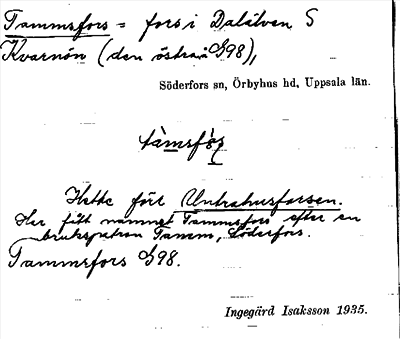 Tammsfors = fors i Dalälven S
Kvarnön (den östra i G98),
Söderfors sn, Örbyhus hd, Uppsala län.
Hette förr Untrahusforsen.
Har fått namnet Tammsfors efter en
brukspatron Tamm, Söderfors.
Tammsfors G98.
Ingegärd Isaksson 1935.